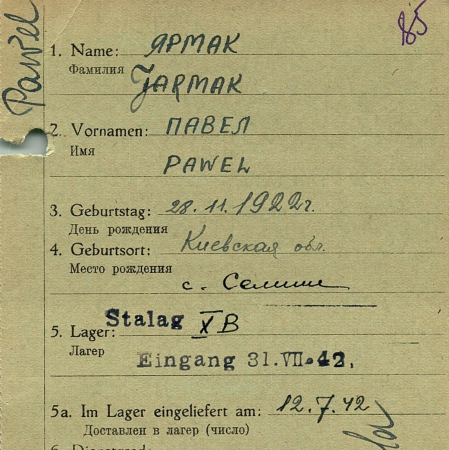 85
Pawel
1. Name: ЯРМАК
Фамилия
JARMAK
2. Vornamen: ПАВЕЛ
Имя
PAWEL
3. Geburtstag: 28.11.1922г.
День рождения
4. Geburtsort: Киевская обл.
Место рождения
с.
5. Lager: Stalag XB
Лагер
Eingang 31.VII.42.
5a. Im Lager eingeliefert am: 12.7.42
Доставлен в лагер (число)